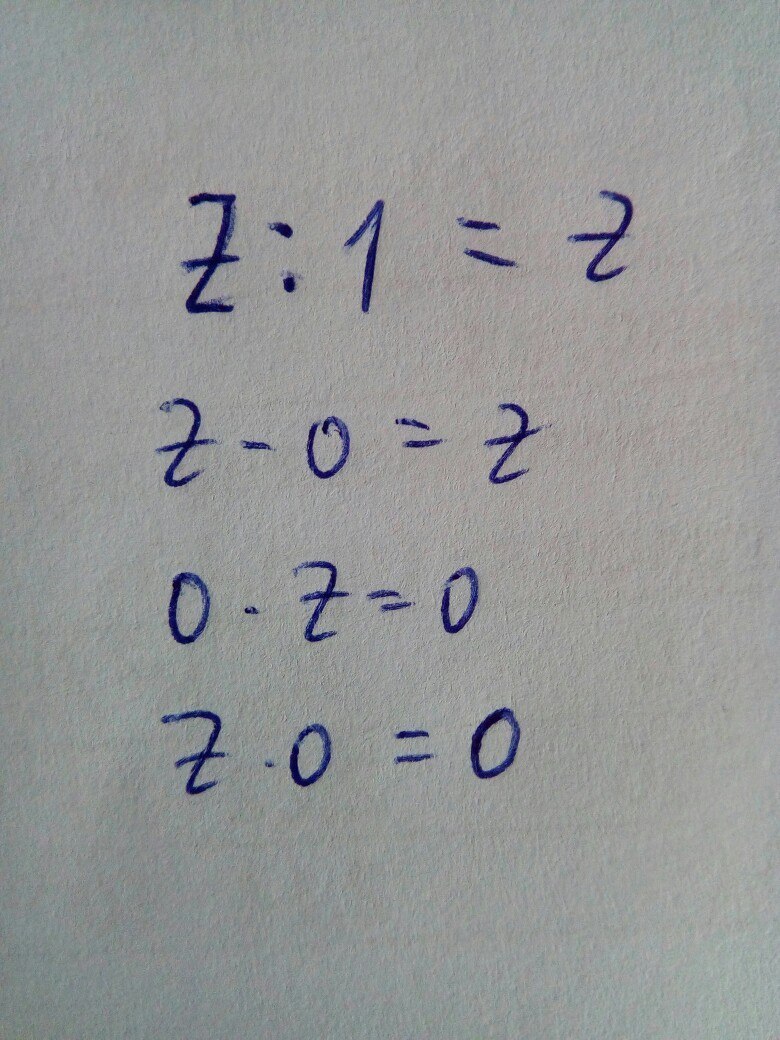 Z : 1 = z
z - 0 = z
0 · z = 0
z · 0 = 0